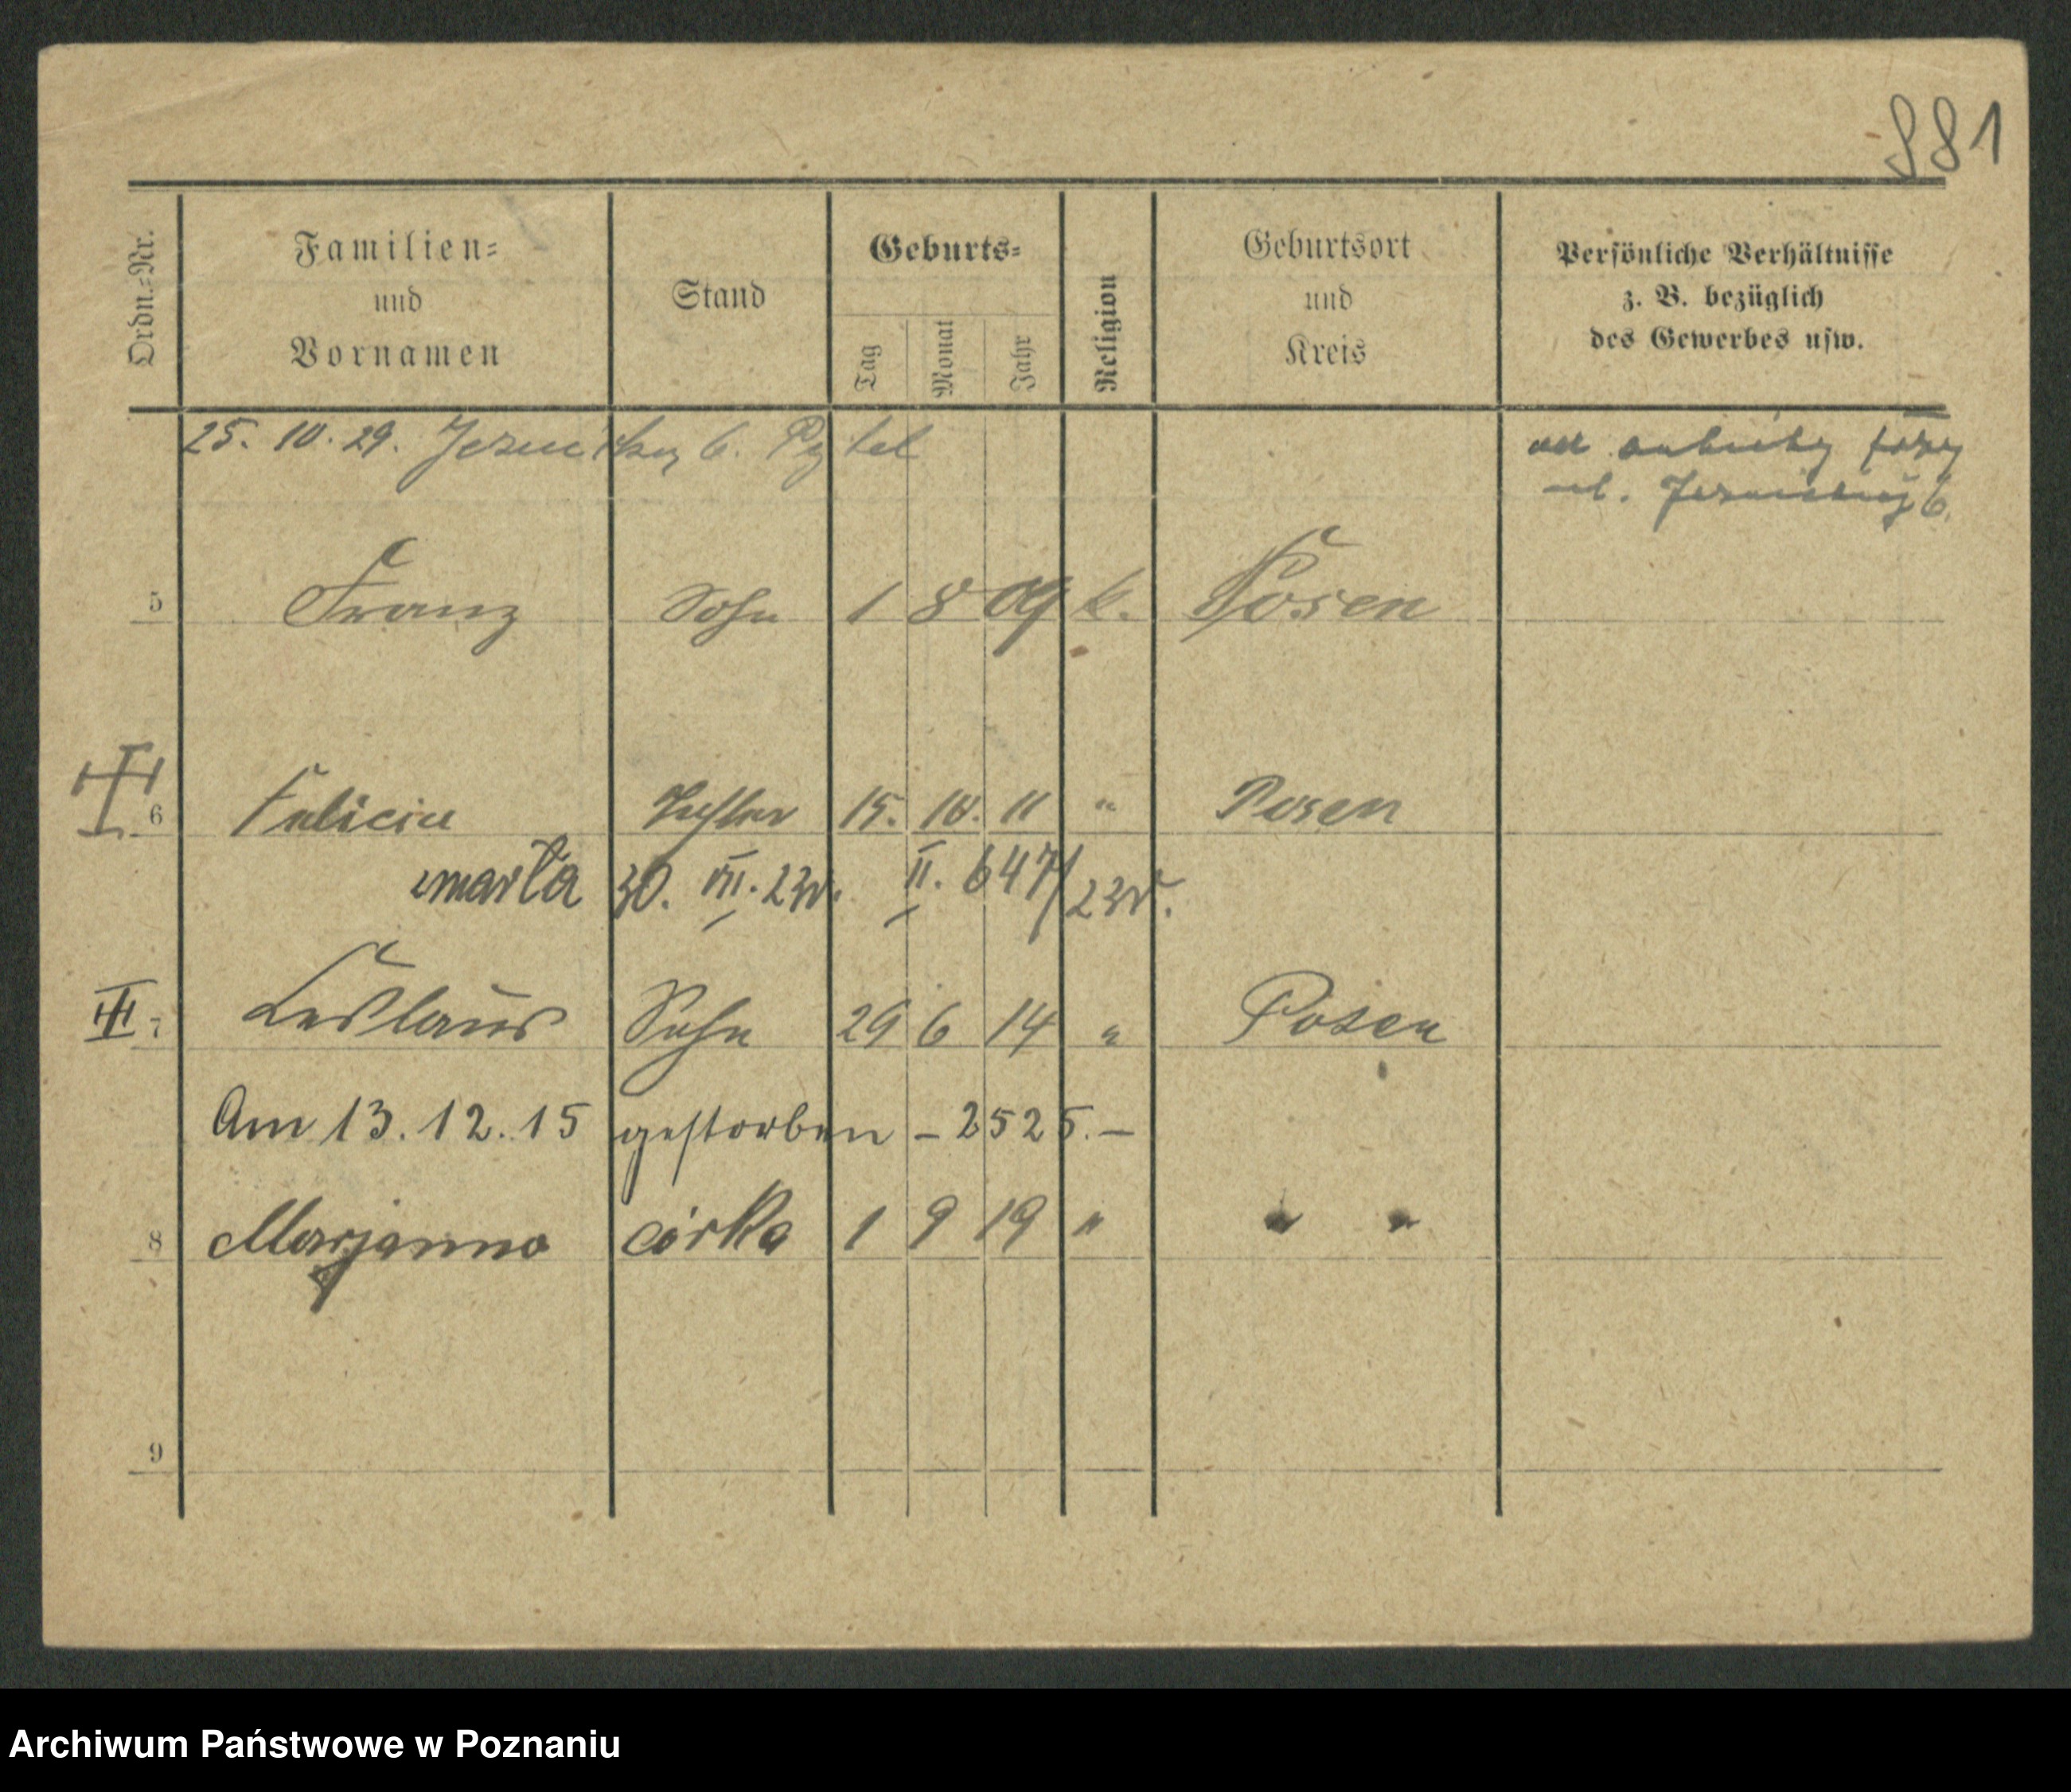 881
Ordn.-Nr.
Familien-
und
Vornamen
Stand
Geburts-
Tag
Monat
Jahr
Religion
Geburtsort
und
Kreis
Persönliche Verhältnisse
z. B. bezüglich
des Gewerbes usw.
25. 10. 29. 6. Pytel
6.
5 Franz Sohn 1 8 09 k. Posen
6 Felicia Tochter 15. 10. 11 " Posen
zmarła 30. VII. 23r. II. 647/23r.
7 Leslaus Sohn 29 6 14 " Posen
Am 13. 12. 15 gestorben – 2525. –
8 Marjanna córka 1 9 19 " " "
9
Archiwum Państwowe w Poznaniu